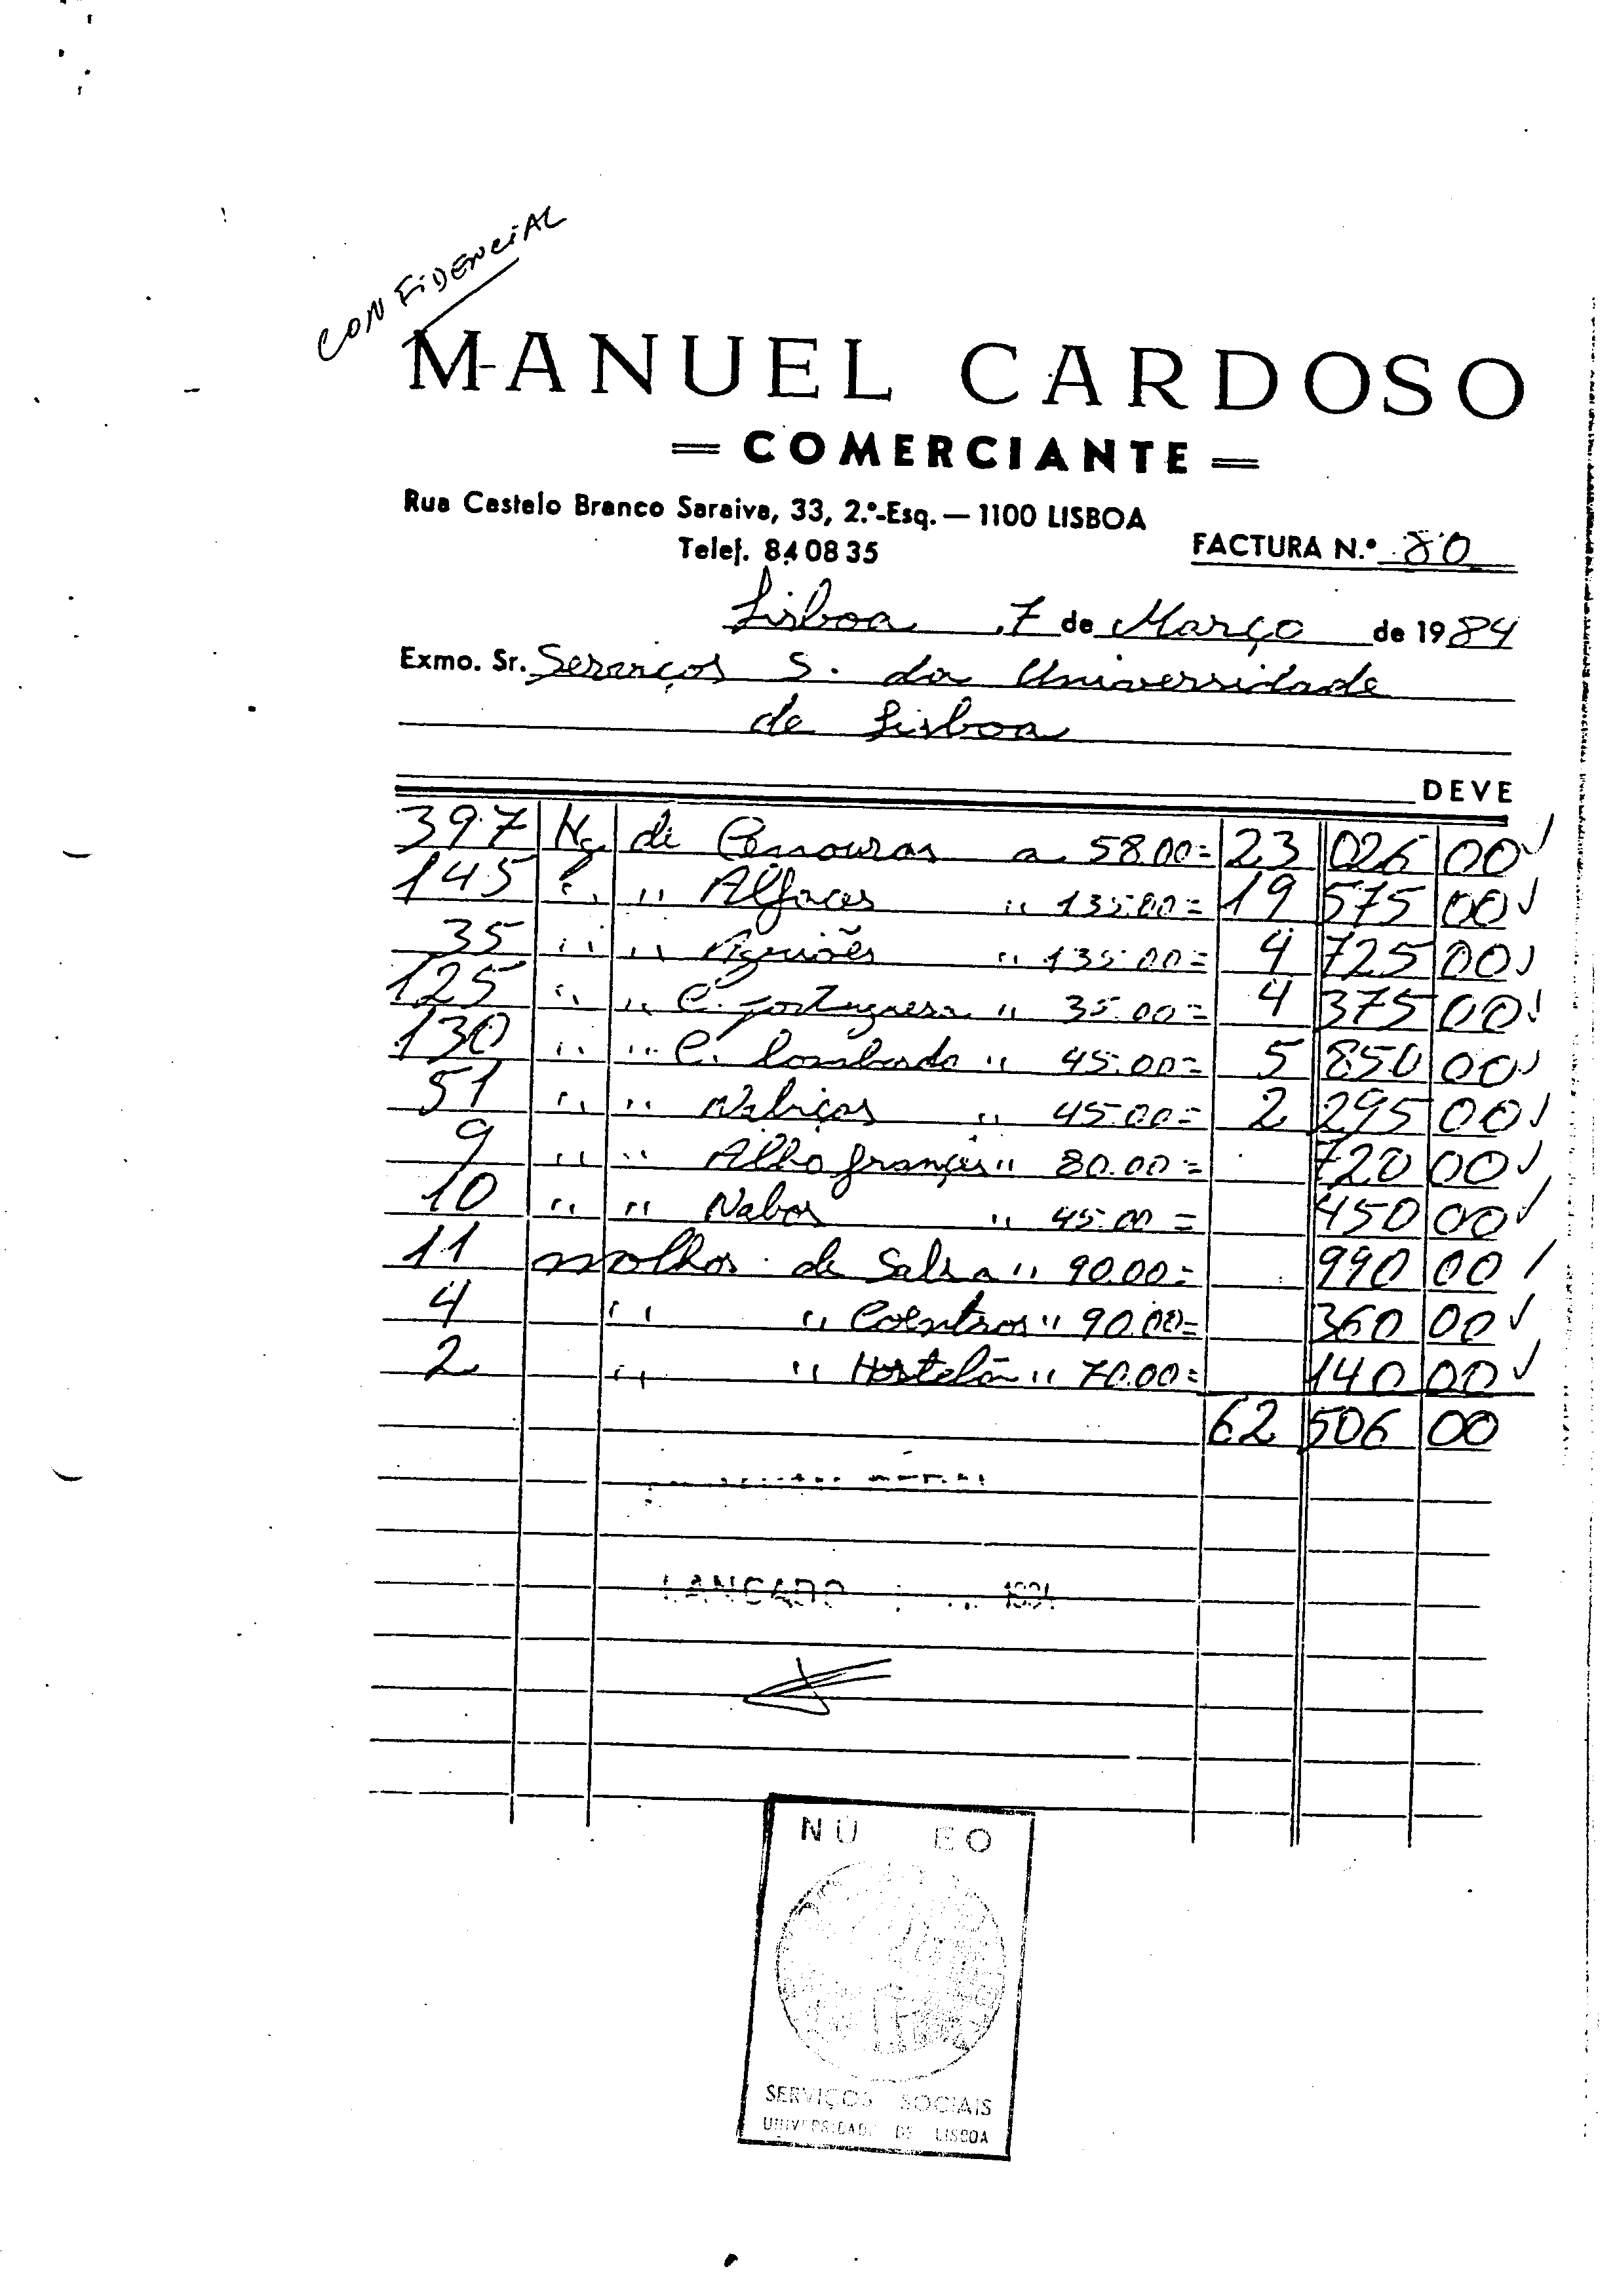 CONFIDENCIAL
MANUEL CARDOSO
= COMERCIANTE =
Rua Castelo Branco Saraiva, 33, 2.º-Esq. — 1100 LISBOA
Telef. 84 08 35
FACTURA N.º 80
Lisboa, 7 de Março de 1984
Exmo. Sr. Serviços S. da Universidade
de Lisboa
DEVE
397 Kg. de Cenouras a 58.00= 23 026 00
145 " " Alfaces " 135.00= 19 575 00
35 " " Agriões " 135.00= 4 725 00
125 " " C. portuguesa " 35.00= 4 375 00
130 " " C. lombardo " 45.00= 5 850 00
51 " " Nabiças " 45.00= 2 295 00
9 " " Alho françês " 80.00= 720 00
10 " " Nabos " 45.00= 450 00
11 molhos de Salsa " 90.00= 990 00
4 " " Coentros " 90.00= 360 00
2 " " Hortelã " 70.00= 140 00
62 506 00
LANÇADO
SERVIÇOS SOCIAIS
UNIVERSIDADE DE LISBOA